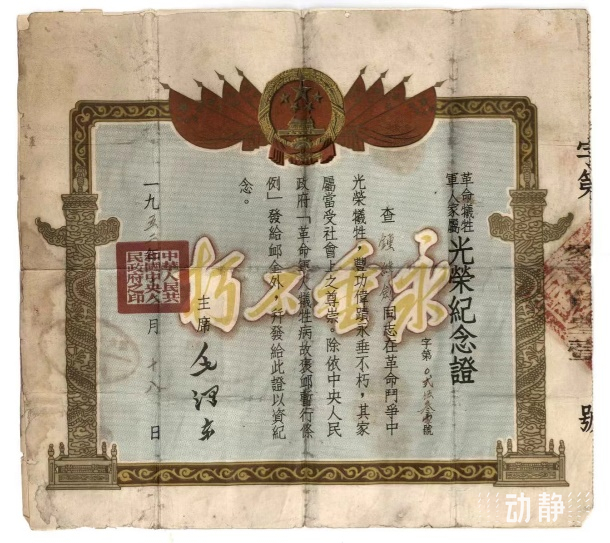 革命犧牲
軍人家屬
光榮紀念證
字第
號
查
同志在革命鬥爭中
光榮犧牲，豐功偉蹟永垂不朽，其家
屬當受社會上之尊崇。除依中央人民
政府「革命軍人犧牲病故褒邺暫行條
例」發給邺金外，并發給此證以資紀
念。
主席
毛澤东
一九五
月十八日
永垂不朽
中華人民共
和國中央人
民政府之印
字第
號
动静